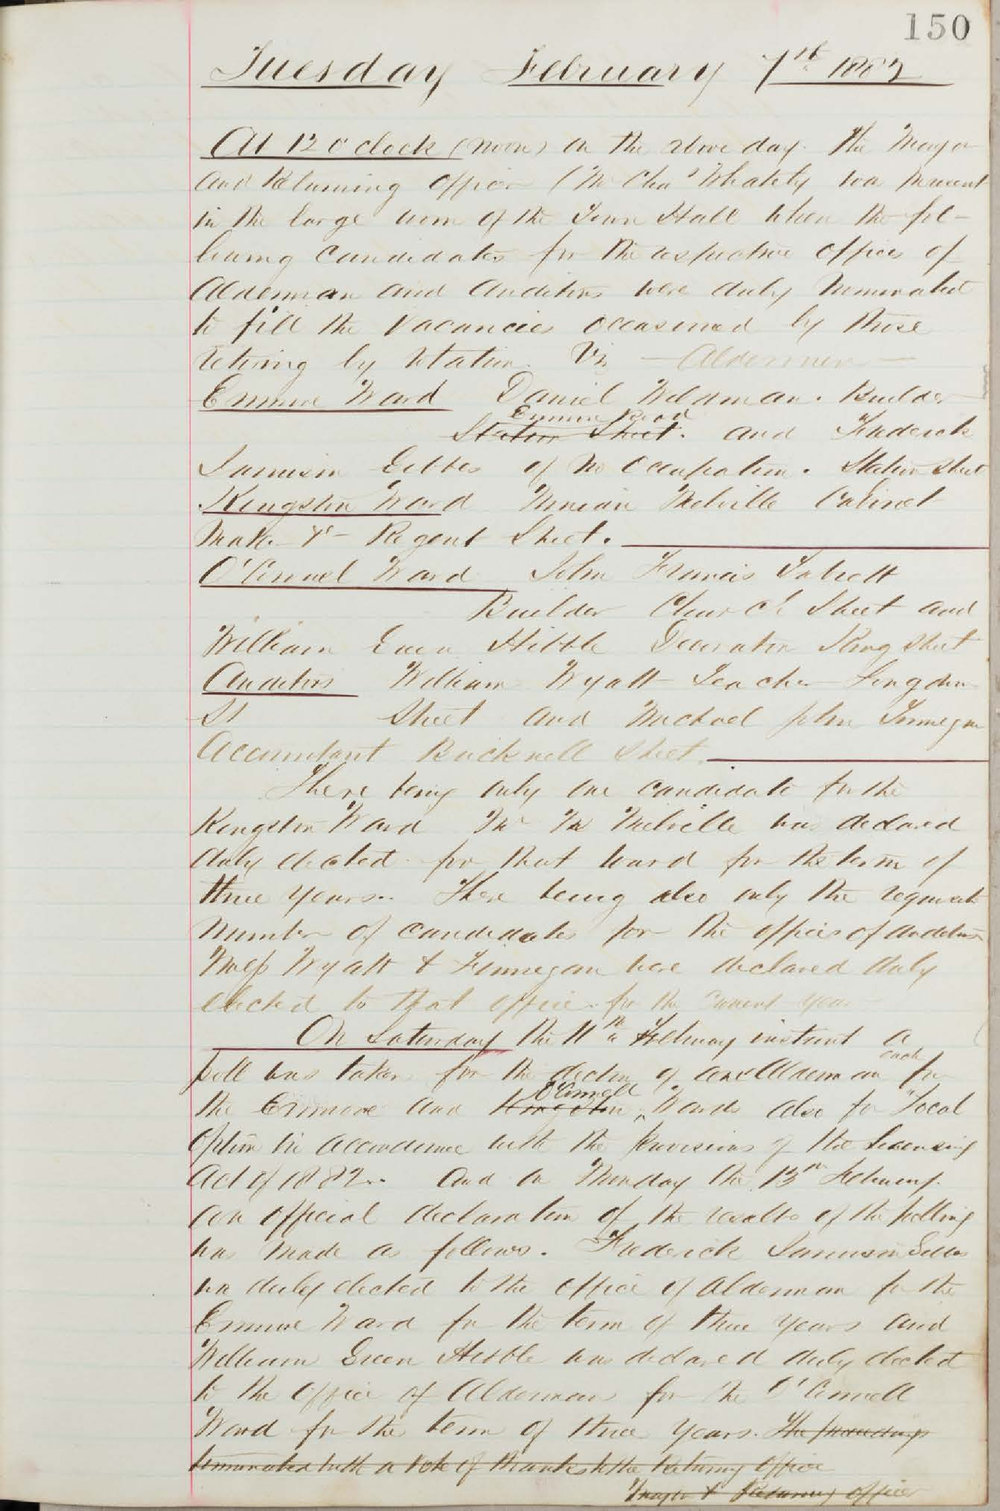 150
Tuesday February 7th 1882
At 12 o'clock (noon) on the above day the Mayor
and Returning Officer (Mr Chas Whately was present
in the large room of the Town Hall when the fol-
lowing candidates for the respective offices of
Alderman and Auditors were duly nominated
to fill the vacancies occasioned by those
retiring by rotation. Viz — Aldermen —
Ermine Ward Daniel Wildman. Builder
Ermine Road
Station Street. and Frederick
Jamison of no occupation. Station Street
Kingston Ward Melville Cabinet
Maker &c Regent Street.
O'Connel Ward John Francis
Builder Church Street and
William Green Hibble Decorator King Street
Auditors William Wyatt Teacher
St Street and Michael John Finnegan
Accountant Bucknell Street.
There being only one candidate for the
Kingston Ward Mr Melville was declared
duly elected for that ward for the term of
three years. There being also only the requisite
number of candidates for the offices of Auditors
Messrs Wyatt & Finnegan were declared duly
elected to that office for the current year
On Saturday the 11th February instant a
each
poll was taken for the election of one Alderman for
O'Connell
the Ermine and Kingston Wards also for Local
Option in accordance with the provisions of the Licensing
Act of 1882. and on Monday the 13th February
an official declaration of the results of the polling
was made as follows. Frederick Jamison
was duly elected to the office of Alderman for the
Ermine Ward for the term of three years and
William Green Hibble was declared duly elected
to the office of Alderman for the O'Connell
Ward for the term of three years. The proceedings
terminated with a vote of thanks to the Returning Officer
Mayor & Returning Officer